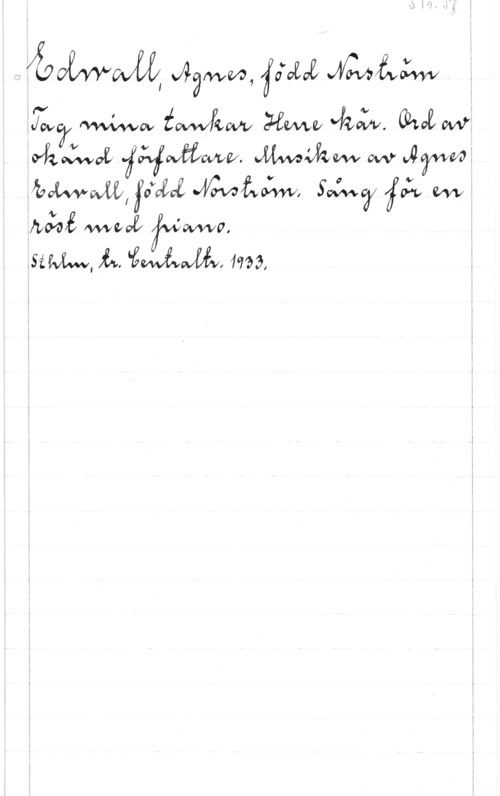 Edwall, Agnes, född Norström
Tag mina tankar Herre kär. Ord av
okänd författare. Musiken av Agnes
Edwall, född Norström. Sång för en
röst med piano.
Sthlm, tr. Centraltr. 1933.